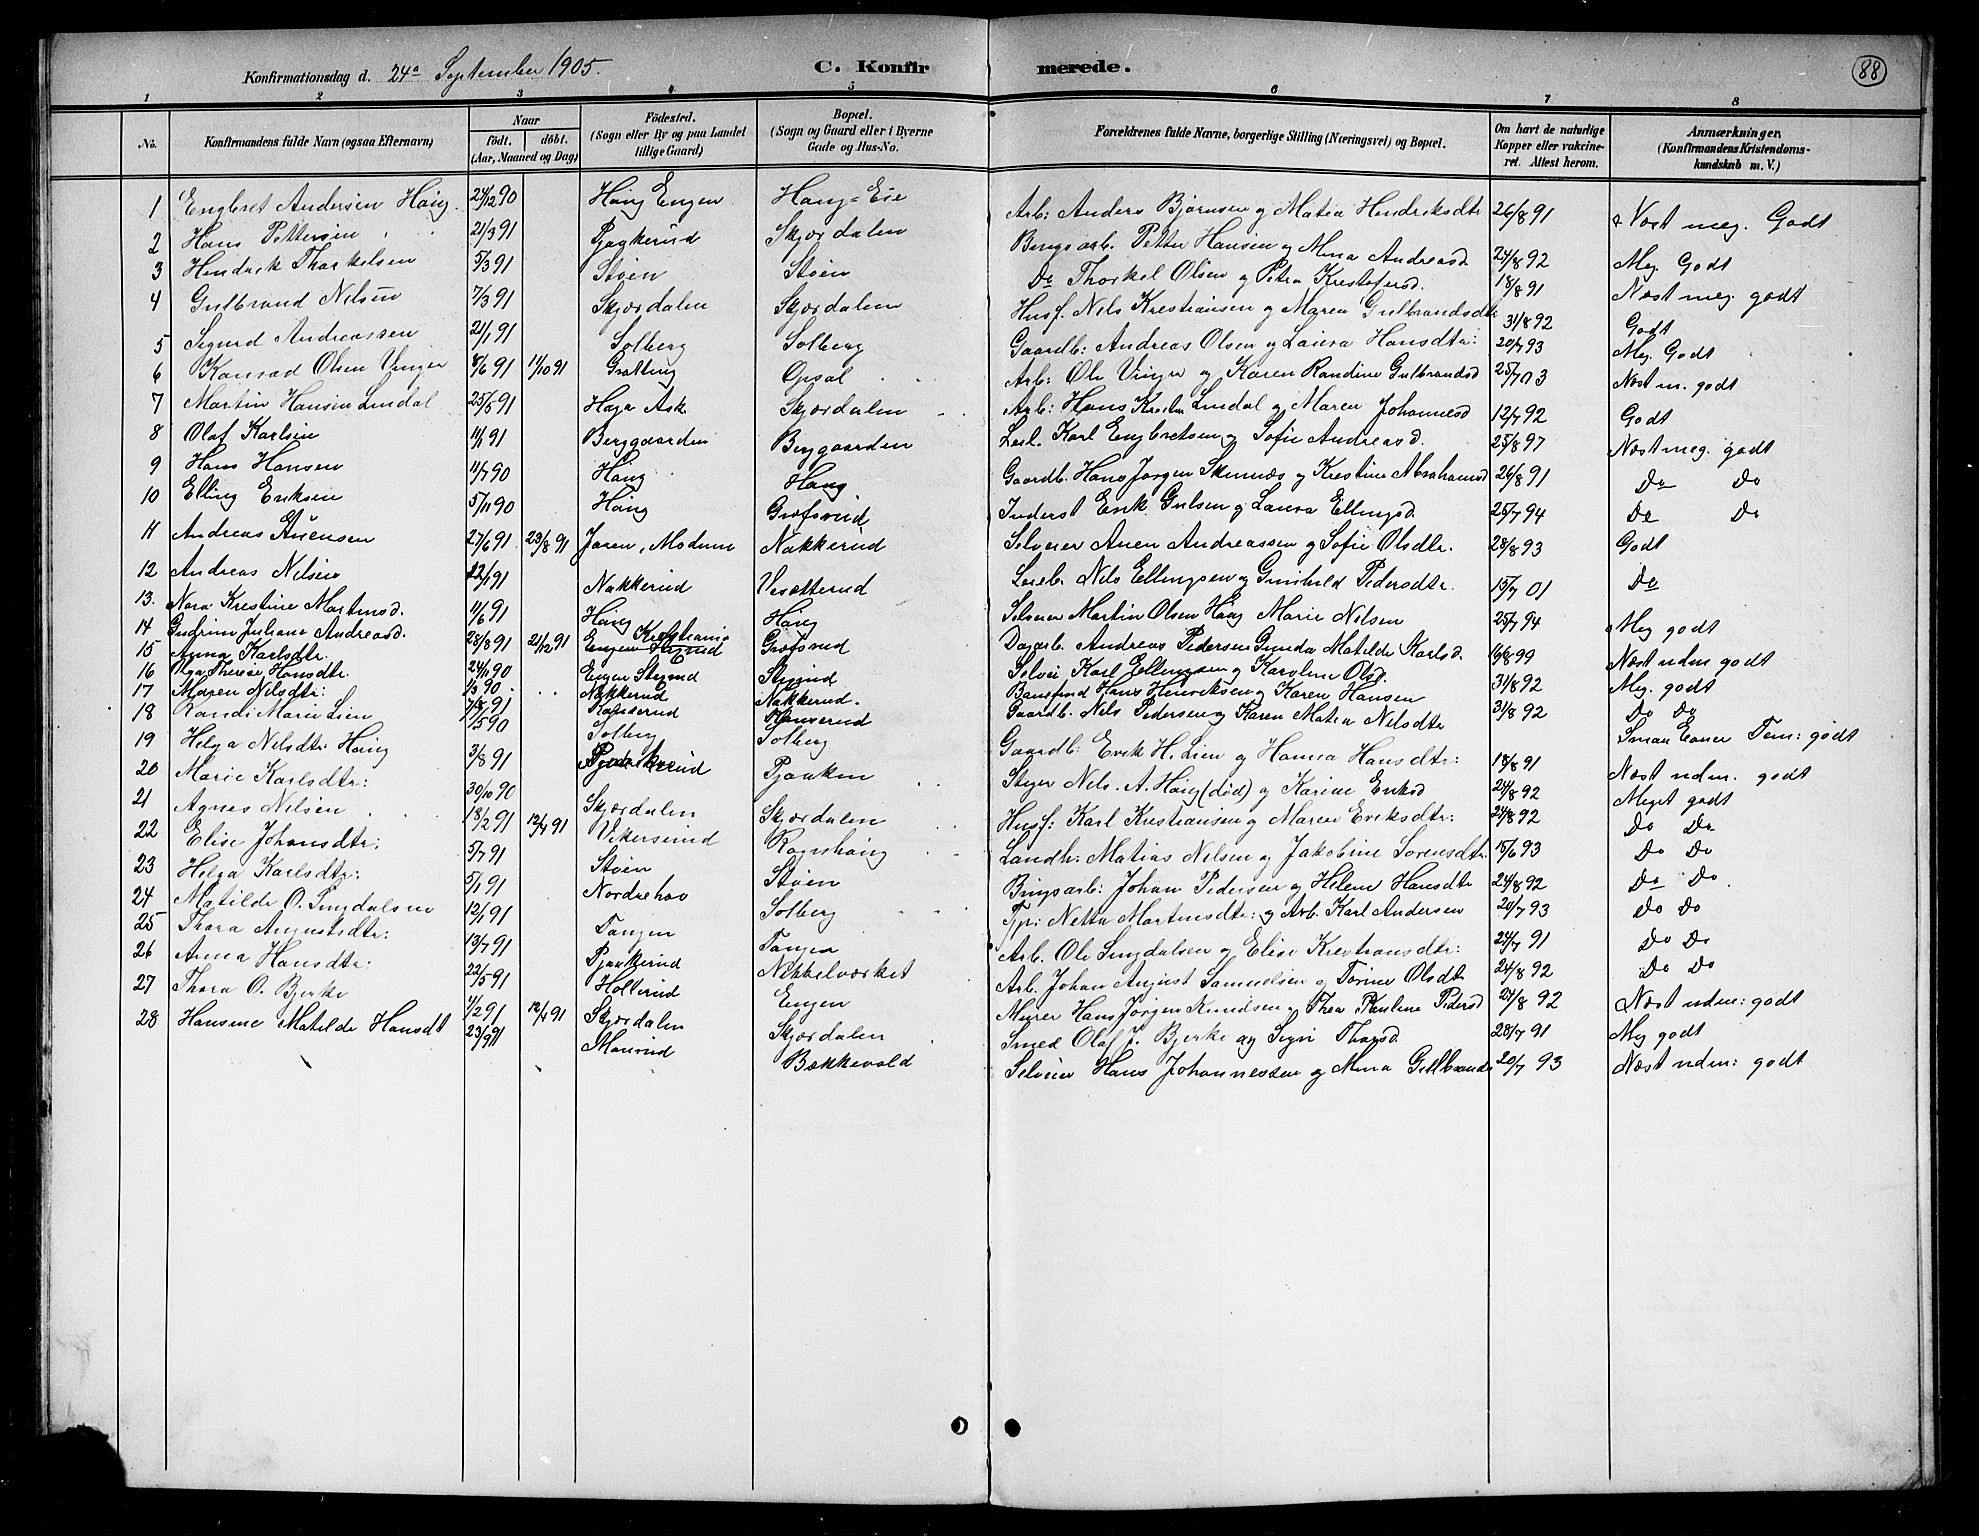 Konfirmationsdag d. 24de September 1905. C. Konfirmerede. 88
1 2 3 4 5 6 7 8
No. Konfirmandens fulde Navn (ogsaa Efternavn) Naar födt. döbt. (Aar, Maaned og Dag) Födested. (Sogn eller By og paa Landet tillige Gaard) Bopæl. (Sogn og Gaard eller i Byerne Gade og Hus-No. Forældrenes fulde Navne, borgerlige Stilling (Næringsvei) og Bopæl. Om havt de naturlige Kopper eller vakcineret. Attest herom. Anmærkninger. (Konfirmandens Kristendomskundskab m. V.)
1 Engbret Andersen Haug 24/12 90 Haug Engen Haug-Eie Arb: Anders Bjørnsen og Matea Hendriksdtr 26/8 91 Næst meg. Godt
2 Hans Pettersen 21/3 91 Pjaakerud Skjærdalen Brugsarb. Petter Hansen og Mina Andreasd. 24/8 92 Meg Godt
3 Hendrik Thorkelsen 5/3 91 Støen Støen Do Thorkel Olsen og Petra Kristofersd. 18/8 91 Næst meg. godt
4 Gulbrand Nilsen 7/3 91 Skjærdalen Skjærdalen Husf. Nils Kristiansen og Maren Gulbrandsdtr 31/8 92 Godt
5 Sigurd Andreassen 21/1 91 Solberg Solberg Gaardb: Andreas Olsen og Laura Hansdtr: 20/7 93 Meg. Godt
6 Konrad Olsen Vinger 8/6 91 11/10 91 Grøtting Opsal Arb: Ole Vinger og Karen Randine Gulbrandsd 25/7 03 Næst m. godt
7 Martin Hansen Lindal 25/5 91 Haga Ask Skjærdalen Arb: Hans Lindal og Maren Johannesd 12/7 92 Godt
8 Olaf Karlsen 11/1 91 Berggaarden Berggaarden Karl Engbretsen og Sofie Andreasd. 25/8 97 Næst meg. godt
9 Hans Hansen 11/7 90 Haug Haug Gaardb. Hans Jørgen Skinnæs og Kristine Abrahamsd 26/8 91 Do Do
10 Elling Eriksen 5/11 90 Haug Græfsrud Inderst Erik Gulsen og Laura Ellingsd. 25/7 94 Do Do
11 Andreas 27/6 91 23/8 91 Jaren, Modum Nakkerud Selveier Andreassen og Sofie Olsdtr. 28/8 93 Godt
12 Andreas Nilsen 22/1 91 Nakkerud Vesætterud Leieb. Nils Ellingsen og Gunhild Pedersdtr. 15/7 01 Do
13. Nora Kristine Martinsd. 11/6 91 Haug Haug Selveier Martin Olsen Haug Marie Nilsen 25/7 94 Meg godt
14 Gudrun Juliane Andreasd. 28/8 91 21/12 91 Kristiania Græfsrud Dagarb. Andreas Pedersen Gunda Matilde Karlsd. 16/8 99 Næst uden godt
15 Anna Karlsdtr. 24/1 90 Engen Styrud Styrud Selvei Karl Ellingsen og Karoline Olsd. 31/8 92 Meg. godt
16 Olga Therese Hansdtr. Nakkerud Nakkerud. Banefmd Hans Henriksen og Karen Hansen 31/8 92 Do Do
17 Maren Nilsdtr: Gaardb. Nils Pedersen og Karen Matea Nilsdtr
18 Randi Marie Lien 5 90 Solberg Solberg Gaardb: Erik H. Lien og Hanna Hansdtr: 18/8 91
19 Helga Nilsdtr Haug 3/8 91 Pjaaken Steger Nils. A. Haug (død) og Karine Eriksd 24/8 92 Næst uden. godt
20 Marie Karlsdtr: 30/10 90 Skjærdalen Skjærdalen Husf: Karl Kristiansen og Maren Eriksdtr: 24/8 92 Meget godt
21 Agnes Nilsen 18/2 91 12/4 91 Vikersund Ramshaug Landh: Matias Nilsen og Jakobine Sorensdtr. 15/6 93 Do Do
22 Elise Johansdtr: 5/7 91 Støen Støen Brugsarb: Johan Pedersen og Helene Hansdtr 24/8 92 Do Do
23 Helga Karlsdtr: 5/1 91 Nordrehov Solberg Netta Martinsdtr: og Arb. Karl Andersen 20/7 93 Do Do.
24 Matilde O. Singdalsen 12/1 91 Tangen Tangen Arb. Ole Singdalsen og Elise Kristiansdtr: 24/7 91 Do Do
25 Thora Augustsdtr: 13/7 91 Pjaakerud Nikkelværket Arb. Johan August Samuelsen og Torine Olsdtr 24/8 92 Do Do
26 Anna Hansdtr: 22/5 91 Hollerud Engen Murer Hans Jørgen Knudsen og Thea Pauline Pedersd 24/8 92 Do Do
27 Thora O. Bjerke 4/2 91 12/4 91 Skjærdalen Skjærdalen Smed Olaf J. Bjerke og Sigri Thorsd. 28/7 91 Næst uden: godt Meg godt
28 Hansine Matilde Hansdt 23/9 91 Maurud Bækkevold Selveier Hans Johannessen og Mina Gulbrandsd 20/7 93 Næst uden: godt